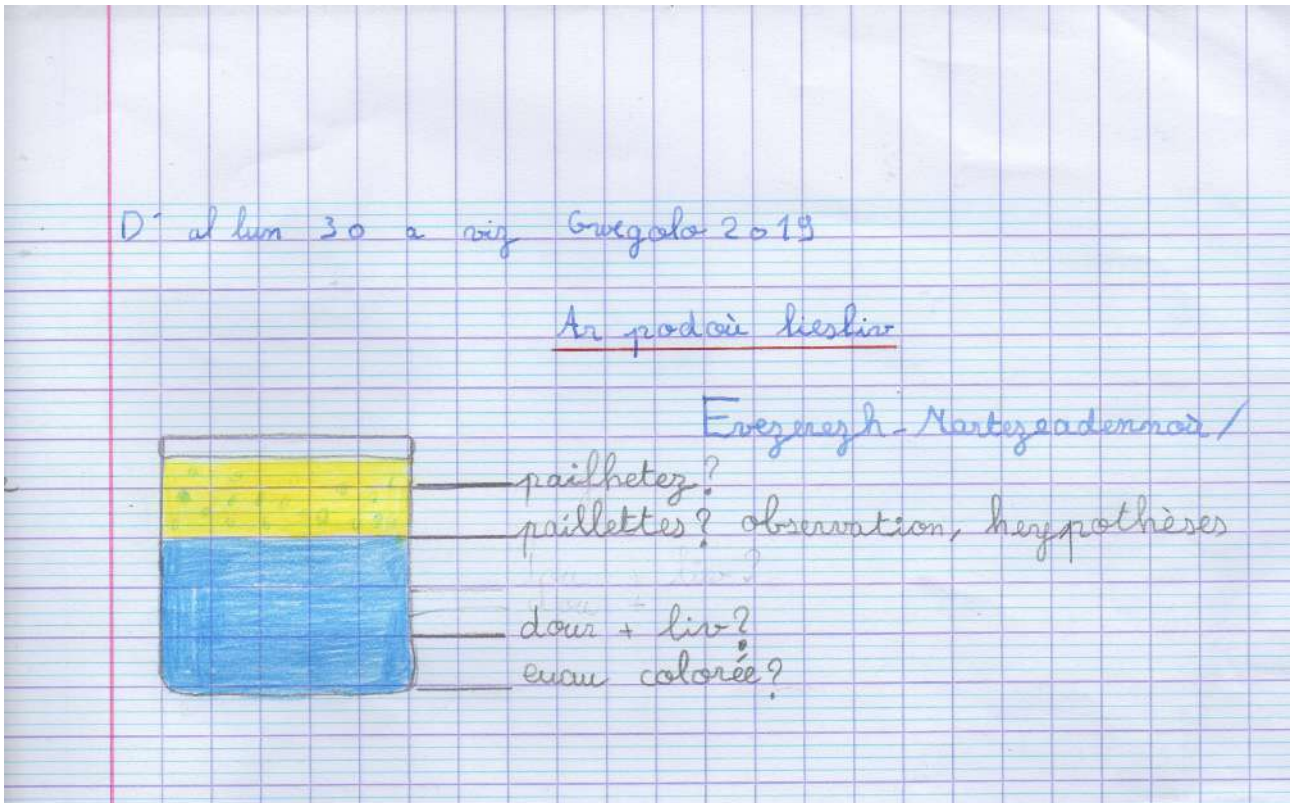 D'al lun 30 a viz Gwegolo 2019
Ar podoù liesliv
Evezerezh - Martezeadennoù /
pailhetez?
paillettes? observation, heypothèses
dour + liv?
euau colorée?